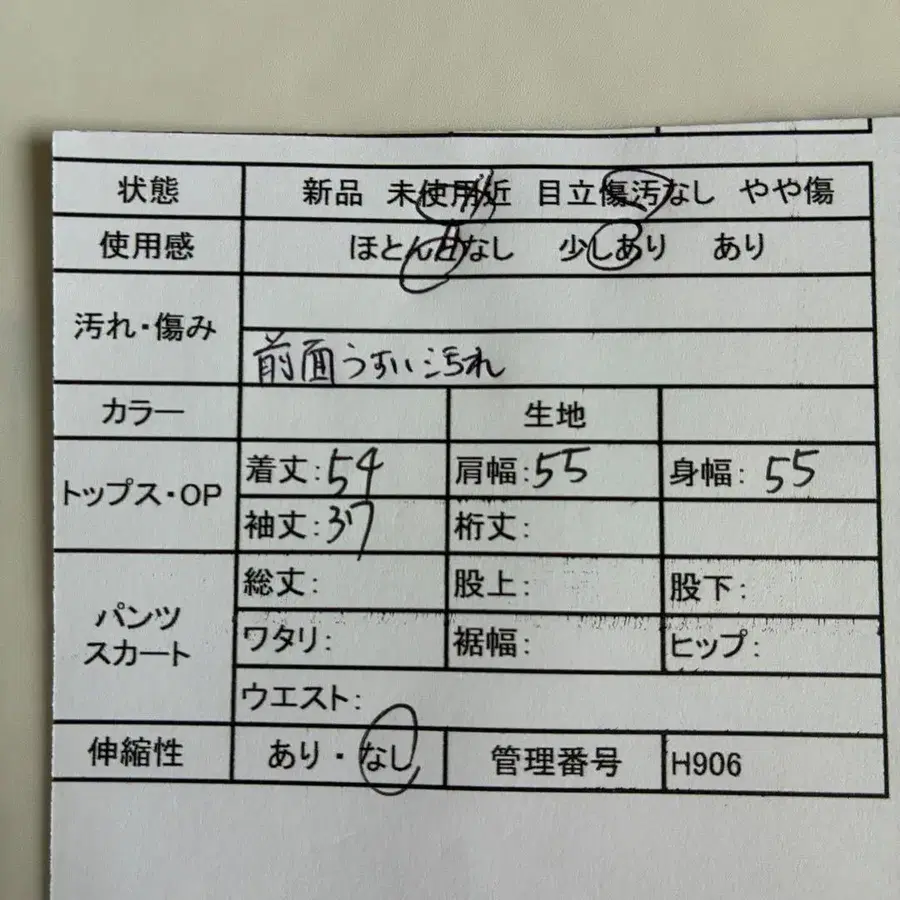 状態 新品 未使用近 目立傷汚なし やや傷
使用感 ほとんどなし 少しあり あり
汚れ・傷み
前面うすい汚れ
カラー 生地
トップス・OP 着丈:54 肩幅:55 身幅:55
袖丈:37 裄丈:
パンツ
スカート
総丈: 股上: 股下:
ワタリ: 裾幅: ヒップ:
ウエスト:
伸縮性 あり・なし 管理番号 H906